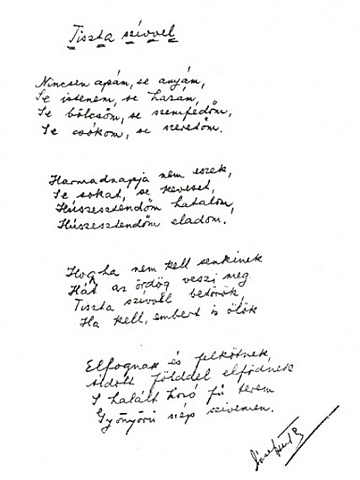 Tiszta szívvel
Nincsen apám, se anyám,
Se istenem, se hazám,
Se bölcsőm, se szemfedőm,
Se csókom, se szeretőm.
Harmadnapja nem eszek,
Se sokat, se keveset,
Húszesztendőm hatalom,
Húszesztendőm eladom.
Hogyha nem kell senkinek
Hát az ördög veszi meg
Tiszta szívvel betörök,
Ha kell, embert is ölök
Elfognak és felkötnek,
Áldott földdel elfödnek
S halált hozó fű terem
Gyönyörű szép szívemen.